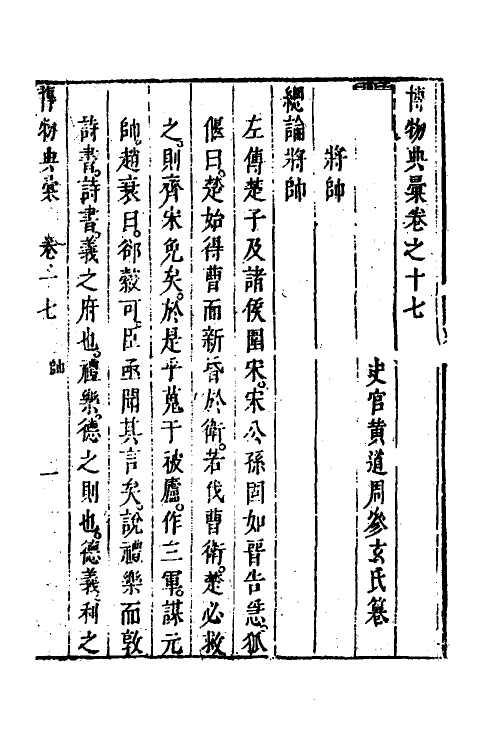 博物典彙卷之十七
史官黃道周參玄氏纂
將帥
總論將帥
左傳楚子及諸侯圍宋。宋公孫固如晉告急。狐
偃曰。楚始得曹而新昏於衛。若伐曹衛。楚必救
之。則齊宋免矣。於是乎蒐于被廬。作三軍。謀元
帥。趙衰曰。郤縠可。臣亟聞其言矣。說禮樂而敦
詩書。詩書。義之府也。禮樂。德之則也。德義。利之
博物典彙 卷十七 帥 一